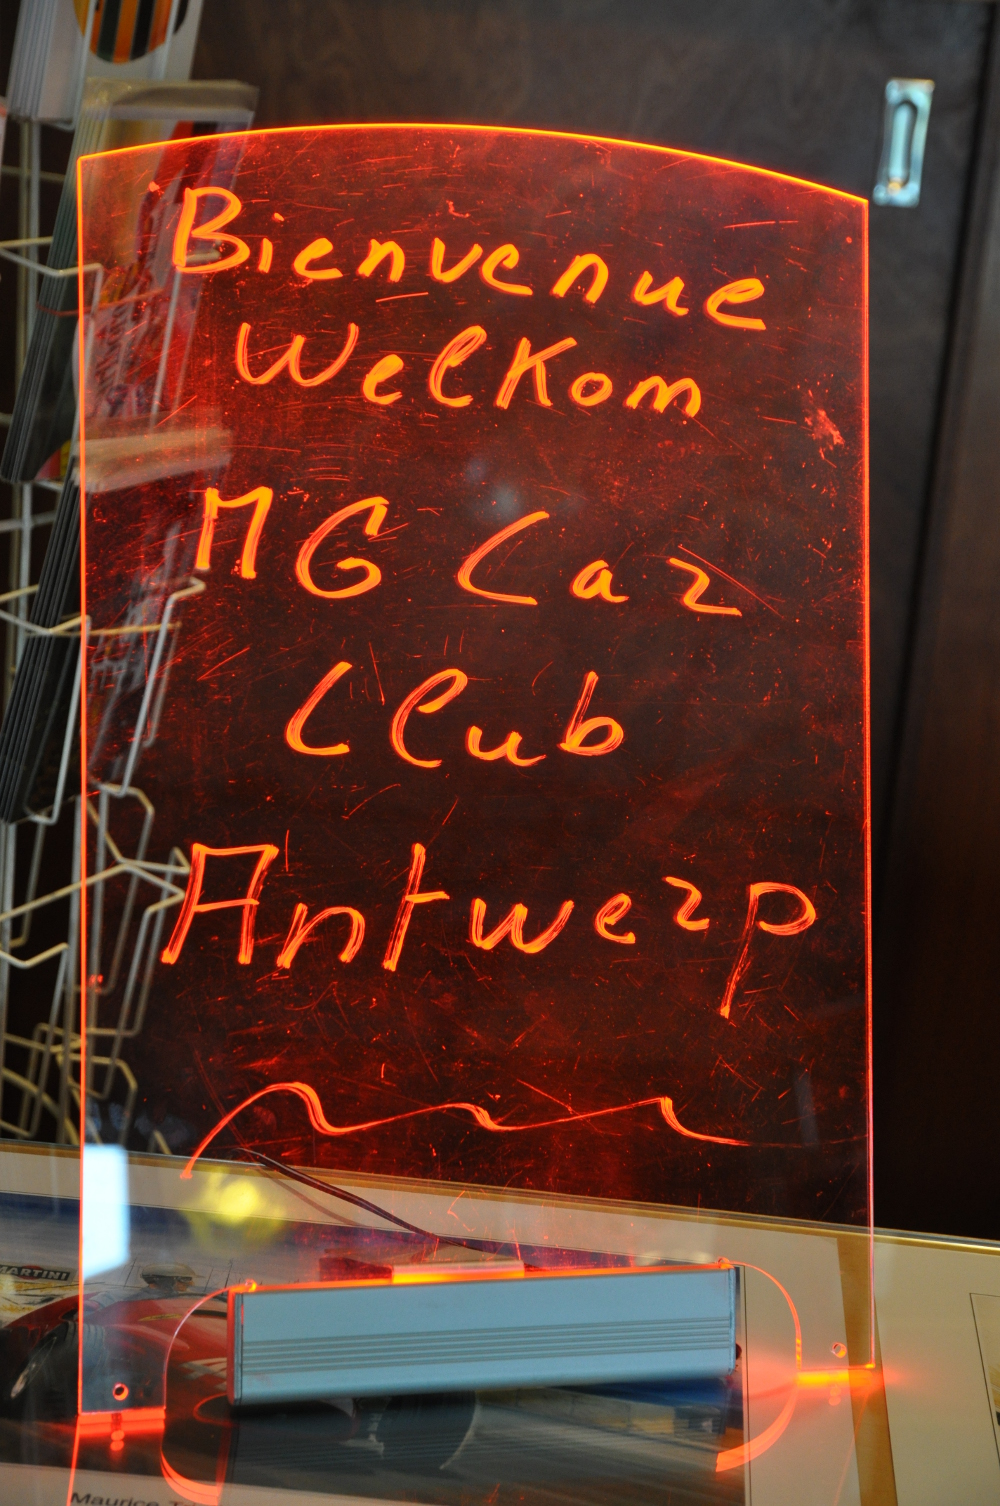 Bienvenue
Welkom
MG Car
Club
Antwerp
MARTINI
Maurice T